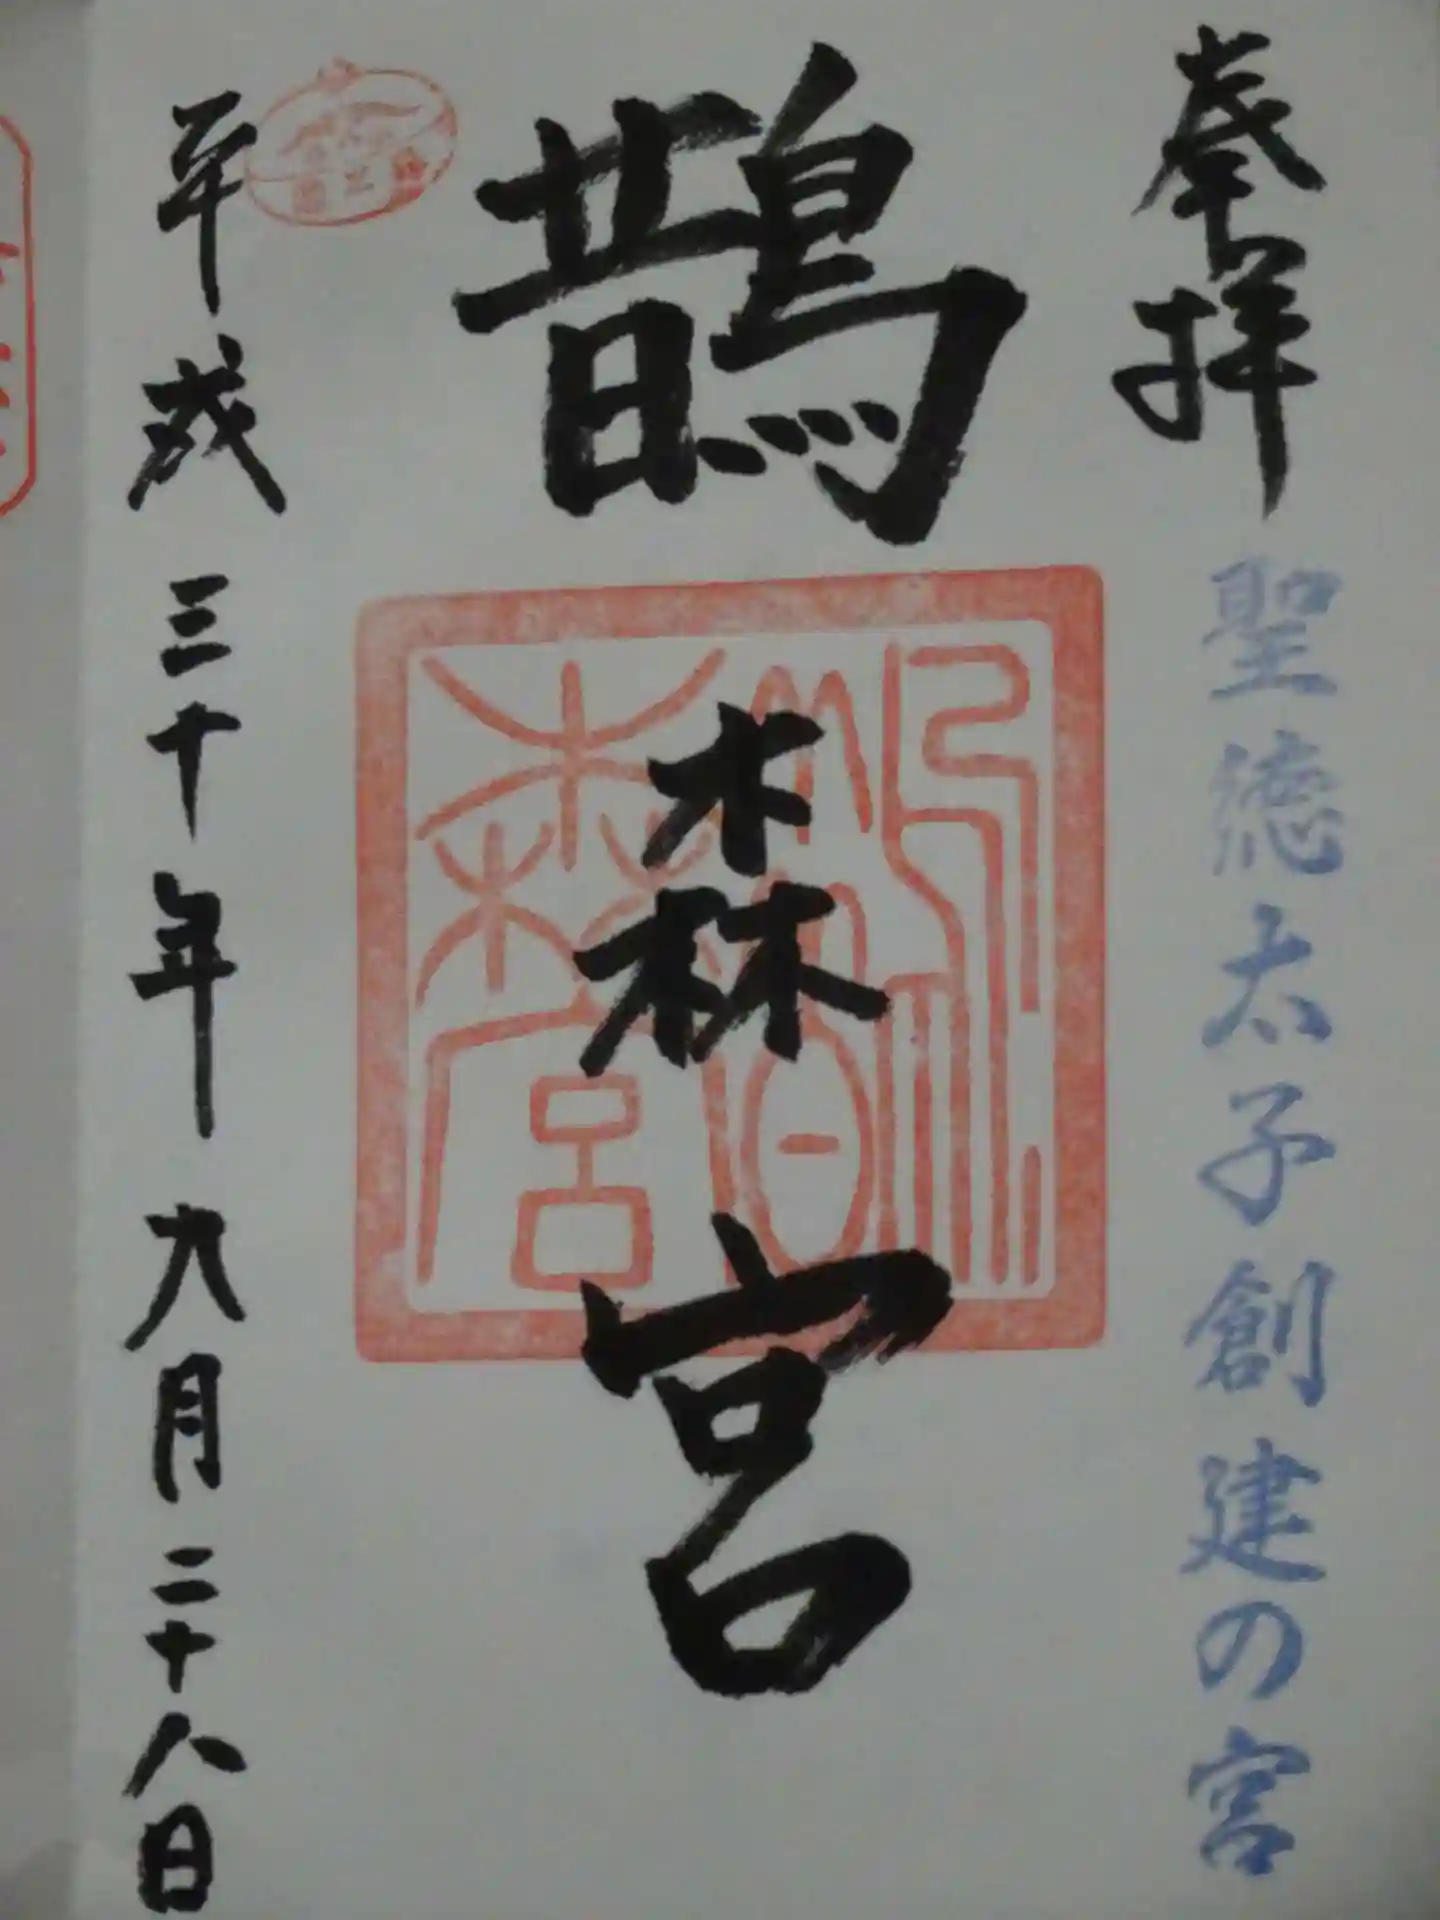 奉拝
聖徳太子創建の宮
鵲森宮
鵲森宮
平成三十年九月二十八日